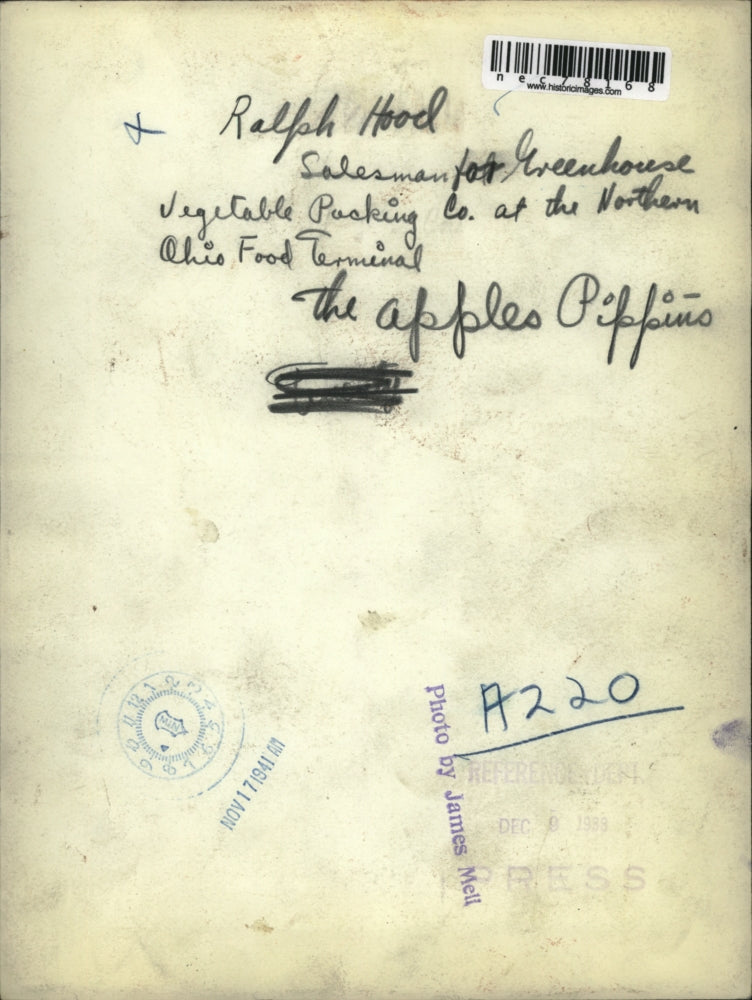 nec78168
www.historicimages.com
Ralph Hood
Salesman for Greenhouse
Vegetable Packing Co. at the Northern
Ohio Food Terminal
the apples Pippins
A220
1 2 3 4 5 6 7 8 9 10 11 12
MIN
NOV 17 1941 AM
Photo by James Mell
REFERENCE DEPT
DEC 9 1983
PRESS